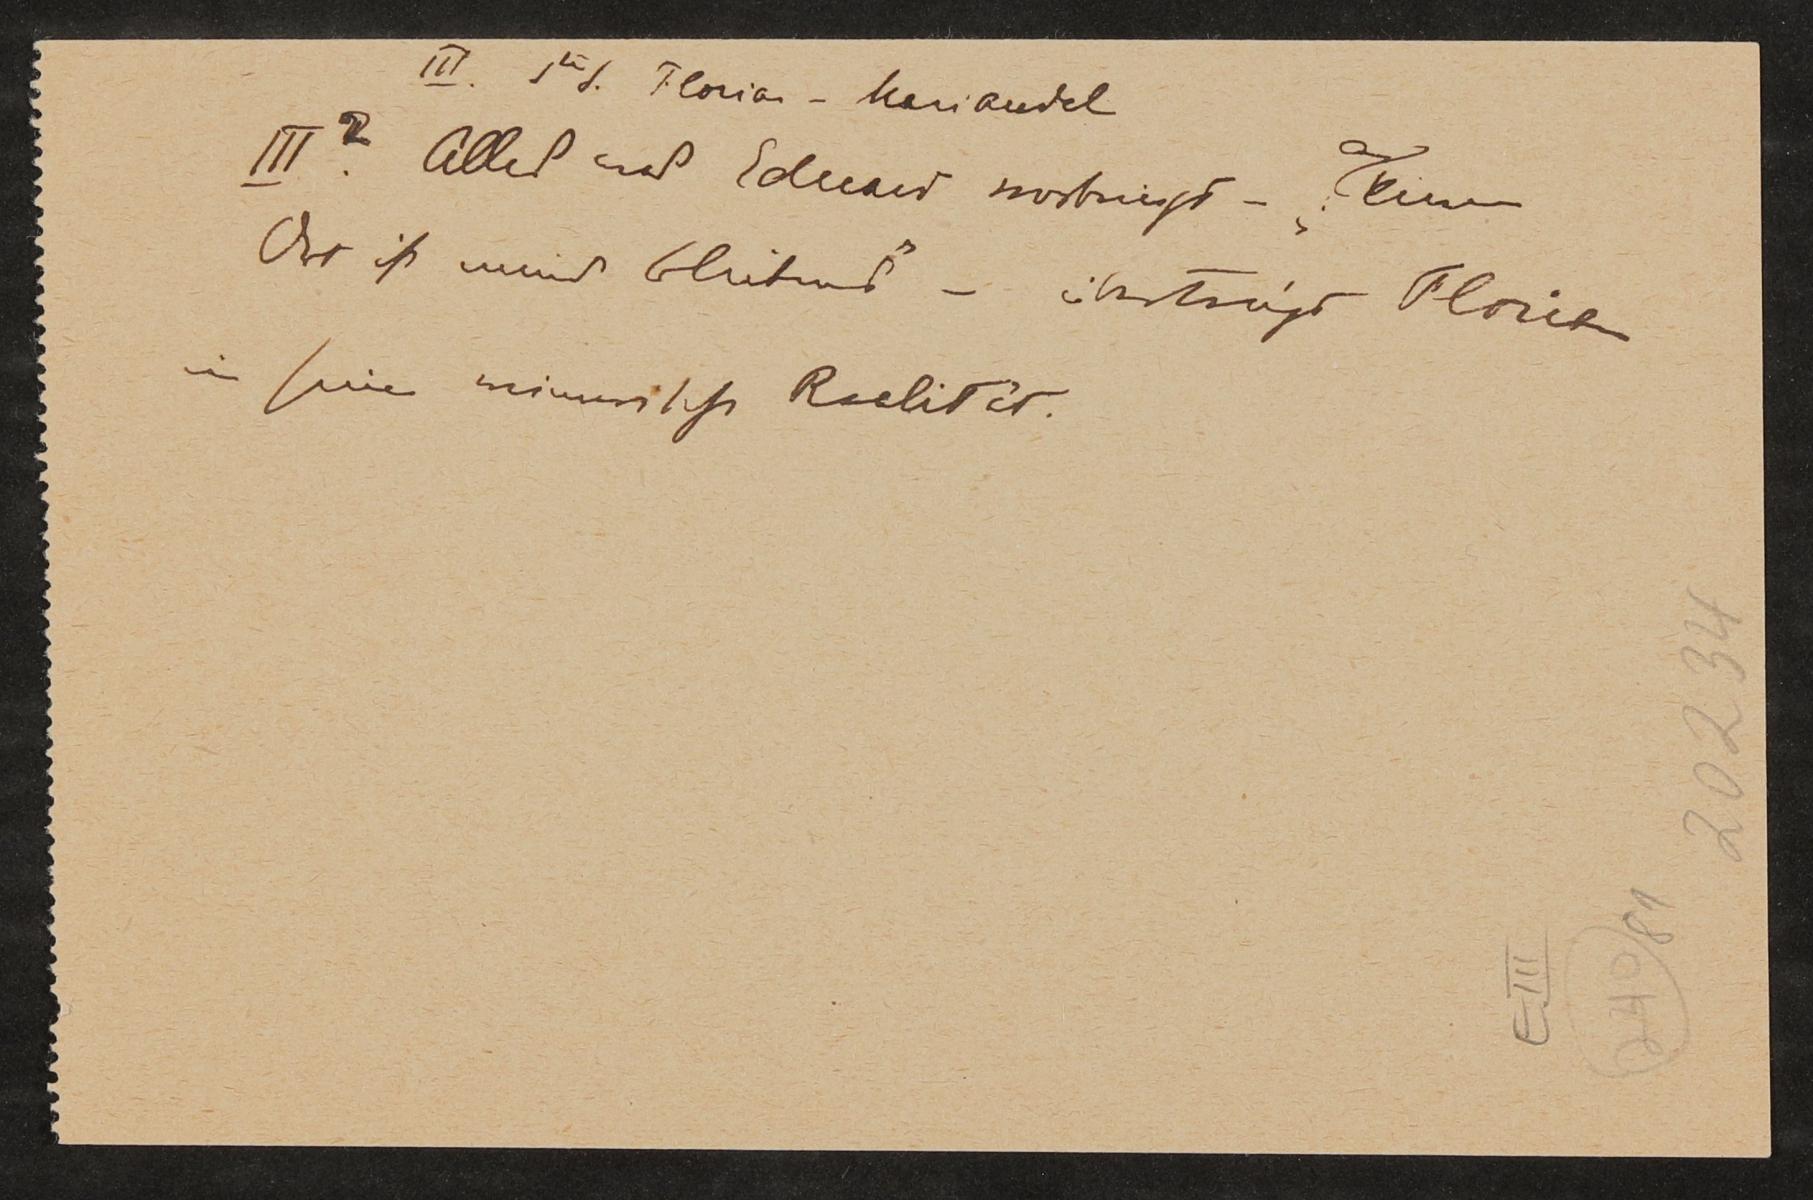 III. Florian – Mariandel
III 2. Alles was Eduard vorbringt – „Keinen
Ort ist meines Bleibens" – überträgt Florian
in seine mimische Realität.
20234
240/81
E III